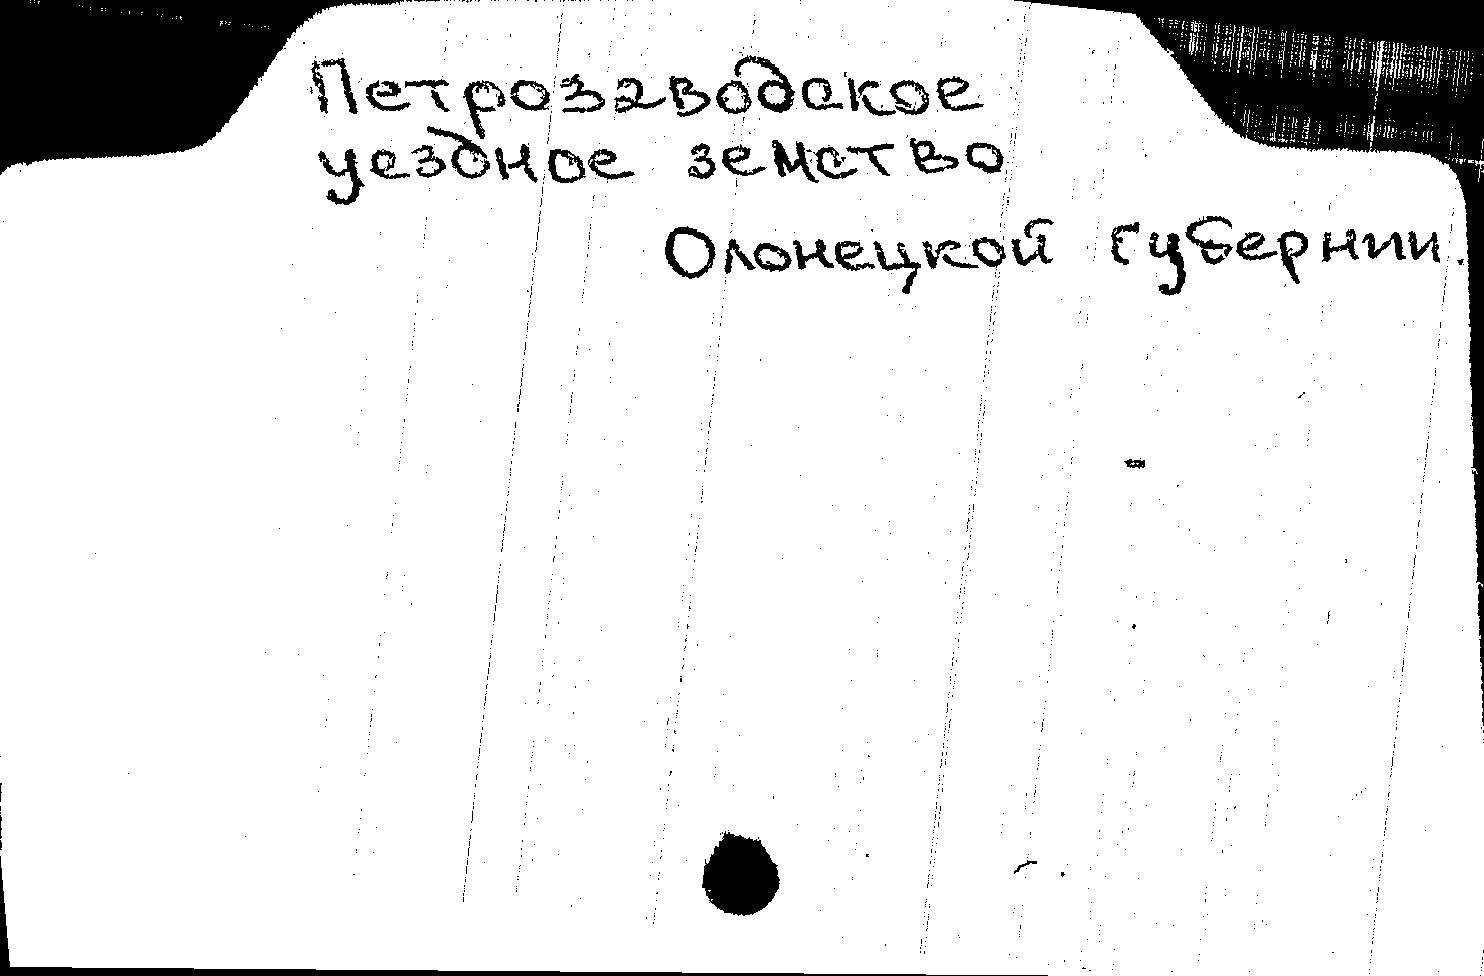 Петрозаводское
уездное земство
Олонецкой губернии.